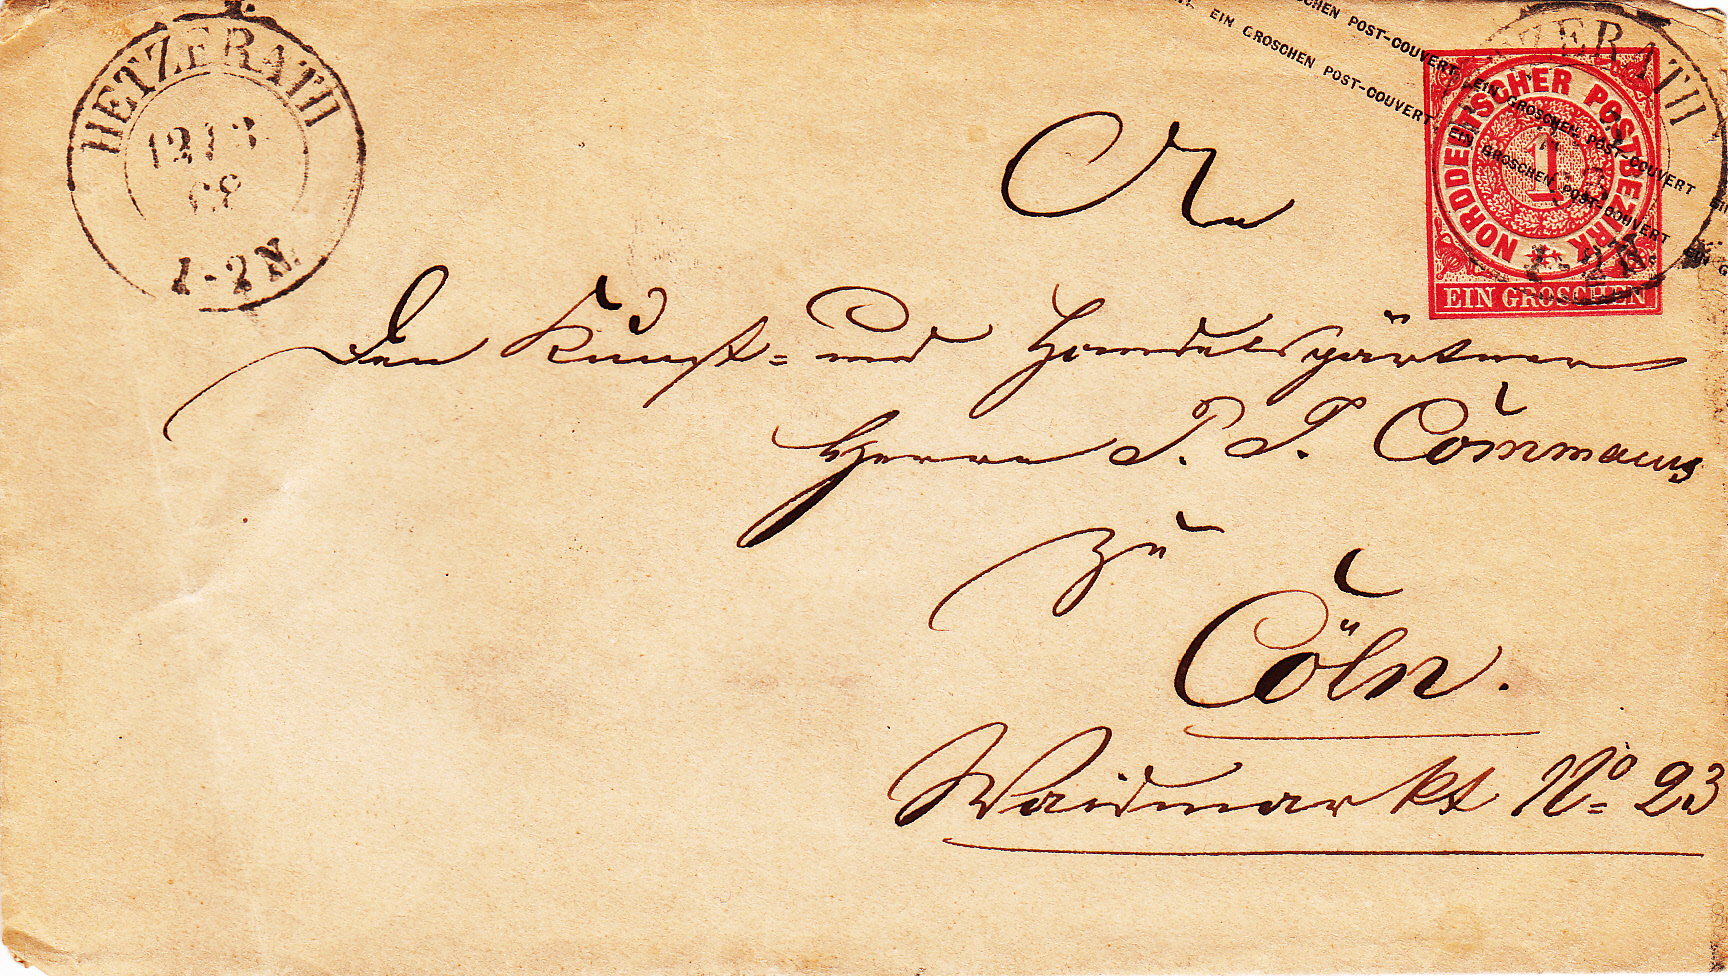 HETZERATH
12 13
68
1-2 N.
EIN GROSCHEN POST-COUVERT EIN GROSCHEN POST-COUVERT
EIN GROSCHEN POST-COUVERT GROSCHEN POST-COUVERT
NORDDEUTSCHER POSTBEZIRK
1
EIN GROSCHEN
ZERATH
1-2 N.
An
Den Kunst- und Handelsgärtner
Herrn P. J. Commans
zu
Cöln.
Waidmarkt No 23